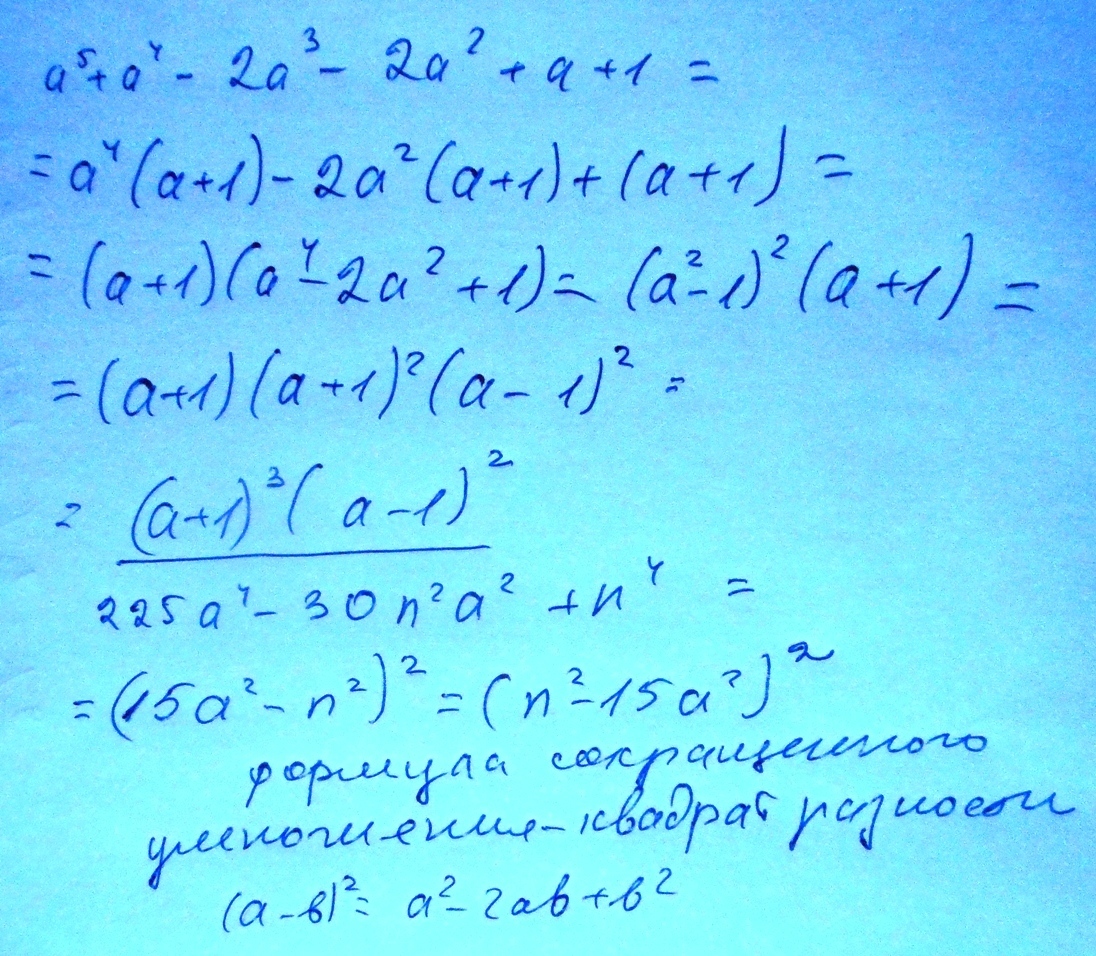 a⁵+a⁴-2a³-2a²+a+1=
=a⁴(a+1)-2a²(a+1)+(a+1)=
=(a+1)(a⁴-2a²+1)=(a²-1)²(a+1)=
=(a+1)(a+1)²(a-1)²=
=(a+1)³(a-1)²
225a⁴-30n²a²+n⁴=
=(15a²-n²)²=(n²-15a²)²
формула сокращенного
умножения-квадрат разности
(a-b)²=a²-2ab+b²